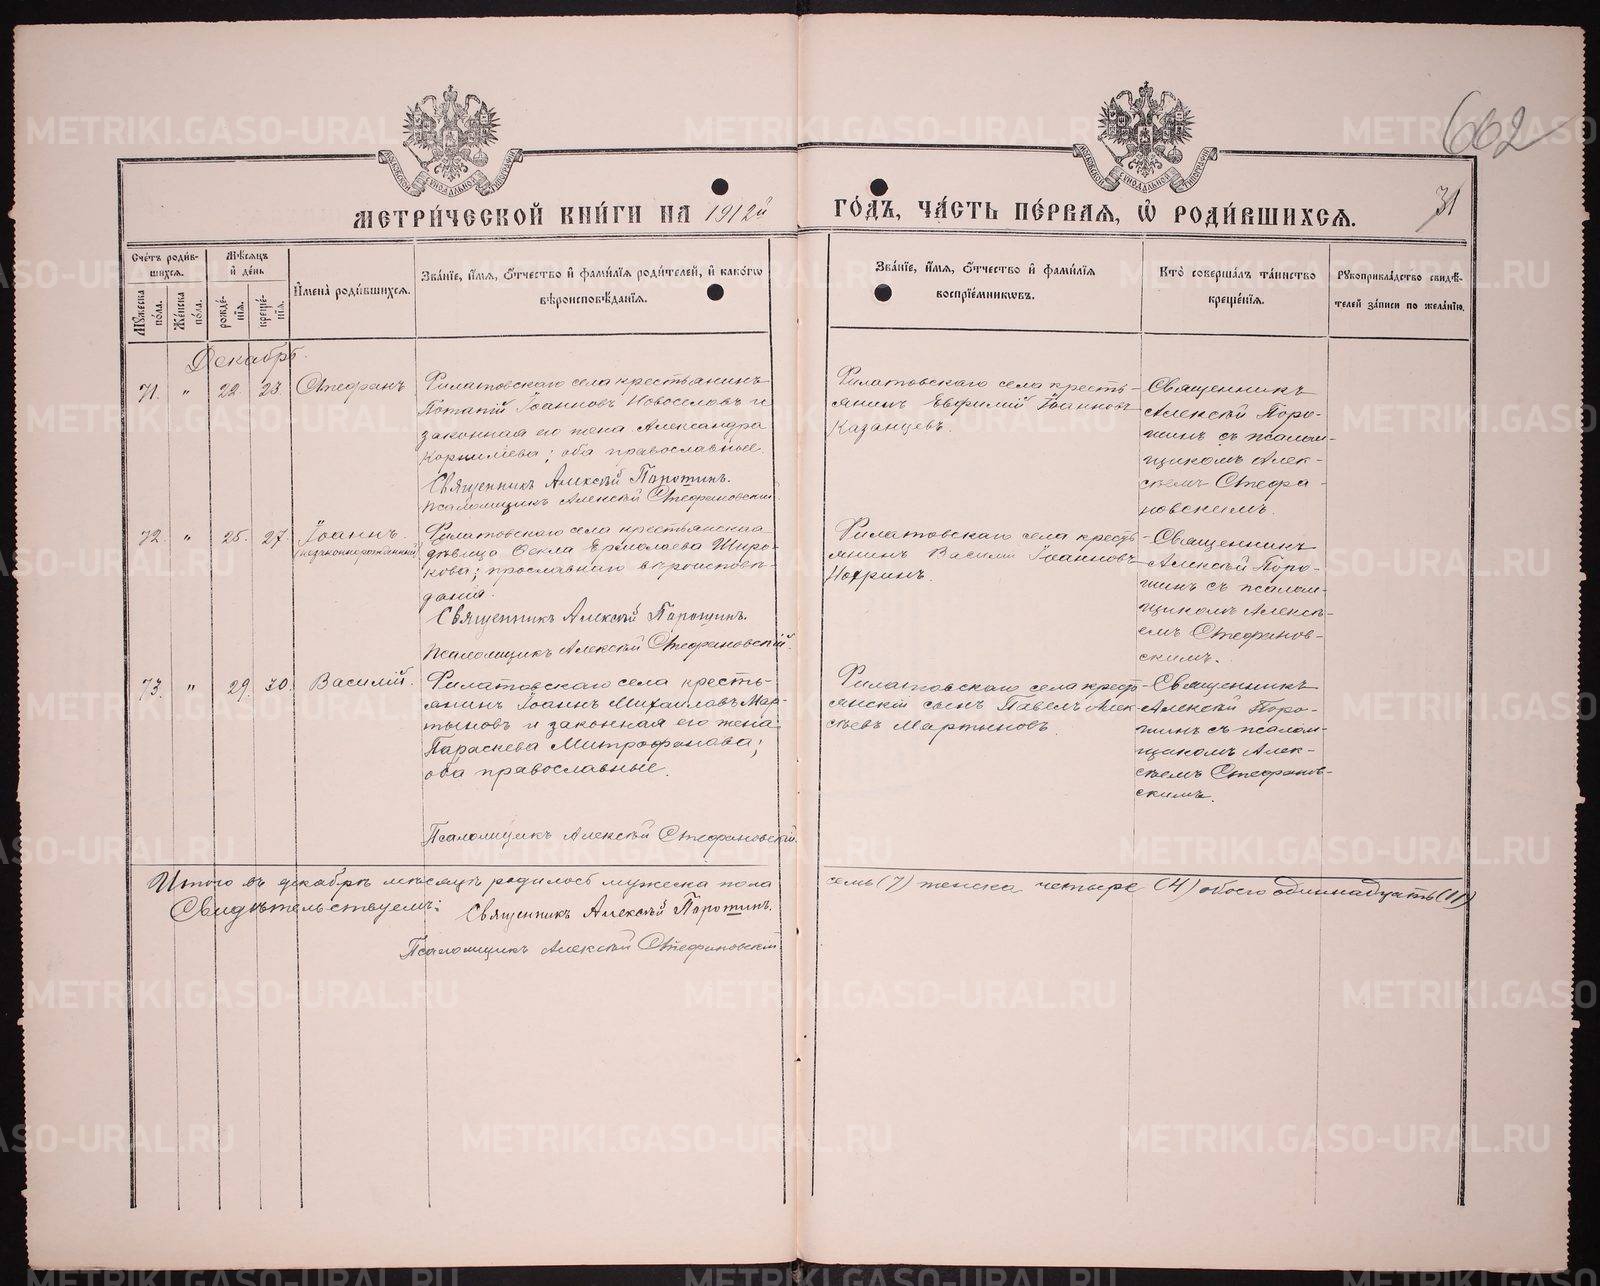 662
31
МЕТРИ́ЧЕСКОЙ КНИ́ГИ НА 1912й ГО́ДЪ, ЧА́СТЬ ПЕ́РВАЯ, Ѿ РОДИ́ВШИХСЯ.
Счетъ роди́в-
шихся.
Мꙋжеска по́ла.
Же́нска по́ла.
Мѣ́сяцъ
и҆ де́нь
рожде́-
нїя.
креще́-
нїя.
И҆мена̀ роди́вшихся.
Зва́нїе, и҆́мя, ѻ҆́тчество и҆ фами́лїя роди́телей, и҆ како́гѡ
вѣроисповѣ́данїя.
Зва́нїе, и҆́мя, ѻ҆́тчество и҆ фами́лїя
воспрїе́мникѡвъ.
Кто̀ соверша́лъ та́инство
креще́нїя.
Рꙋкоприкла́дство свидѣ́-
телей за́писи по жела́нїю.
Декабрь.
71. " 22. 23. Стефанъ
Филатовскаго села крестьянинъ
Потапій Іоанновъ Новоселовъ и
законная его жена Александра
Корнилиева; оба православные.
Священникъ Алексѣй Порошинъ.
Псаломщикъ Алексѣй Стефановскій
Филатовскаго села кресть-
янинъ Евфимій Іоанновъ
Казанцевъ.
Священникъ
Алексѣй Поро-
шинъ съ псалом-
щикомъ Алек-
сѣемъ Стефа-
новскимъ.
72. " 25. 27. Іоаннъ.
(незаконнорожденный)
Филатовскаго села крестьянская
дѣвица Ѳекла Ермолаева Широ-
кова; православнаго вѣроисповѣ-
данія.
Священникъ Алексѣй Порошинъ.
Псаломщикъ Алексѣй Стефановскій.
Филатовскаго села кресть-
янинъ Василій Іоанновъ
Нохринъ.
Священникъ
Алексѣй Поро-
шинъ съ псалом-
щикомъ Алексѣ-
емъ Стефанов-
скимъ.
73. " 29. 30. Василій.
Филатовскаго села кресть-
янинъ Іоаннъ Михаиловъ Мар-
тыновъ и законная его жена
Параскева Митрофанова;
оба православные.
Псаломщикъ Алексѣй Стефановскій.
Филатовскаго села крест-
янскій сынъ Павелъ Алек-
сѣевъ Мартыновъ.
Священникъ
Алексѣй Поро-
шинъ съ псалом-
щикомъ Алек-
сѣемъ Стефанов-
скимъ.
Итого въ декабрѣ мѣсяцѣ родилось мужеска пола семь (7) женска четыре (4) обоего одиннадцать (11)
Свидѣтельствуемъ: Священникъ Алексѣй Порошинъ.
Псаломщикъ Алексѣй Стефановскій
METRIKI.GASO-URAL.RU